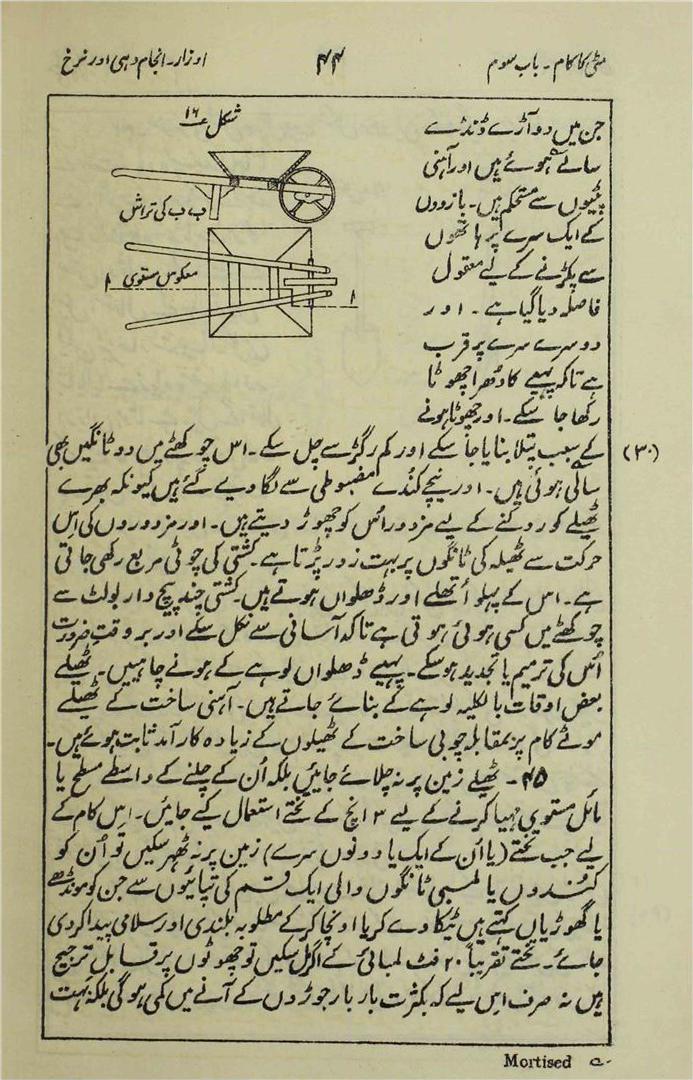 مٹی کا کام - باب سوم
۴۴
اوزار - انجام دہی اور نرخ
شکل ۱۶
ب ب کی تراش
معکوس مستوی
جن میں دو آڑے ڈنڈے
سالے ہوئے ہیں اور آہنی
پٹیوں سے مستحکم ہیں۔ بازووں
کے ایک سرے پر ہاتھوں
سے پکڑنے کے لیے معقول
فاصلہ دیا گیا ہے ۔ اور
دوسرے سرے پر قرب
ہے تاکہ پہیے کا دُھرا چھوٹا
رکھا جا سکے۔ اور چھوٹا ہونے
کے سبب پتلا بنایا جا سکے اور کم رگڑ سے چل سکے ۔ اس چوکھٹے میں دو ٹانگیں بھی (۳۰)
سالی ہوئی ہیں۔ اور نیچے کنُدے مضبوطی سے لگا دیے گئے ہیں کیونکہ بھرے
ٹھیلے کو روکنے کے لیے مزدور اس کو چھوڑ دیتے ہیں۔ اور مزدوروں کی اس
حرکت سے ٹھیلہ کی ٹانگوں پر بہت زور پڑتا ہے۔ کشتی کی چوٹی مربع رکھی جاتی
ہے۔ اس کے پہلو اُتھلے اور ڈھلواں ہوتے ہیں۔ کشتی چند پیچ دار بولٹ سے
چوکھٹے میں کسی ہوئی ہوتی ہے تاکہ آسانی سے نکل سکے اور بر وقتِ ضرورت
اُس کی ترمیم یا تجدید ہوسکے۔ پہیے ڈھلواں لوہے کے ہونے چاہییں۔ ٹھیلے
بعض اوقات بالکلیہ لوہے کے بنائے جاتے ہیں۔ آہنی ساخت کے ٹھیلے
موٹے کام پر بمقابلہ چوبی ساخت کے ٹھیلوں کے زیادہ کارآمد ثابت ہوئے ہیں۔
۴۵ - ٹھیلے زمین پر نہ چلائے جائیں بلکہ اُن کے چلنے کے واسطے مسطح یا
مائل مستوی مہیا کرنے کے لیے ۳ انچ کے تختے استعمال کیے جائیں۔ اس کام کے
لیے جب تختے (یا اُن کے ایک یا دونوں سرے) زمین پر نہ ٹھہر سکیں تو اُن کو
کُندوں یا لمبی ٹانگوں والی ایک قسم کی تپائیوں سے جن کو مونڈھے
یا گھوڑیاں کہتے ہیں ٹیکا دے کر یا اونچا کر کے مطلوبہ بلندی اور سلامی پیدا کردی
جائے۔ تختے تقریباً ۲۰ فٹ لمبائی کے اگر مل سکیں تو چھوٹوں پر قابل ترجیح
ہیں نہ صرف اس لیے کہ بکثرت بار بار جوڑوں کے آنے میں کمی ہوگی بلکہ بہت
Mortised